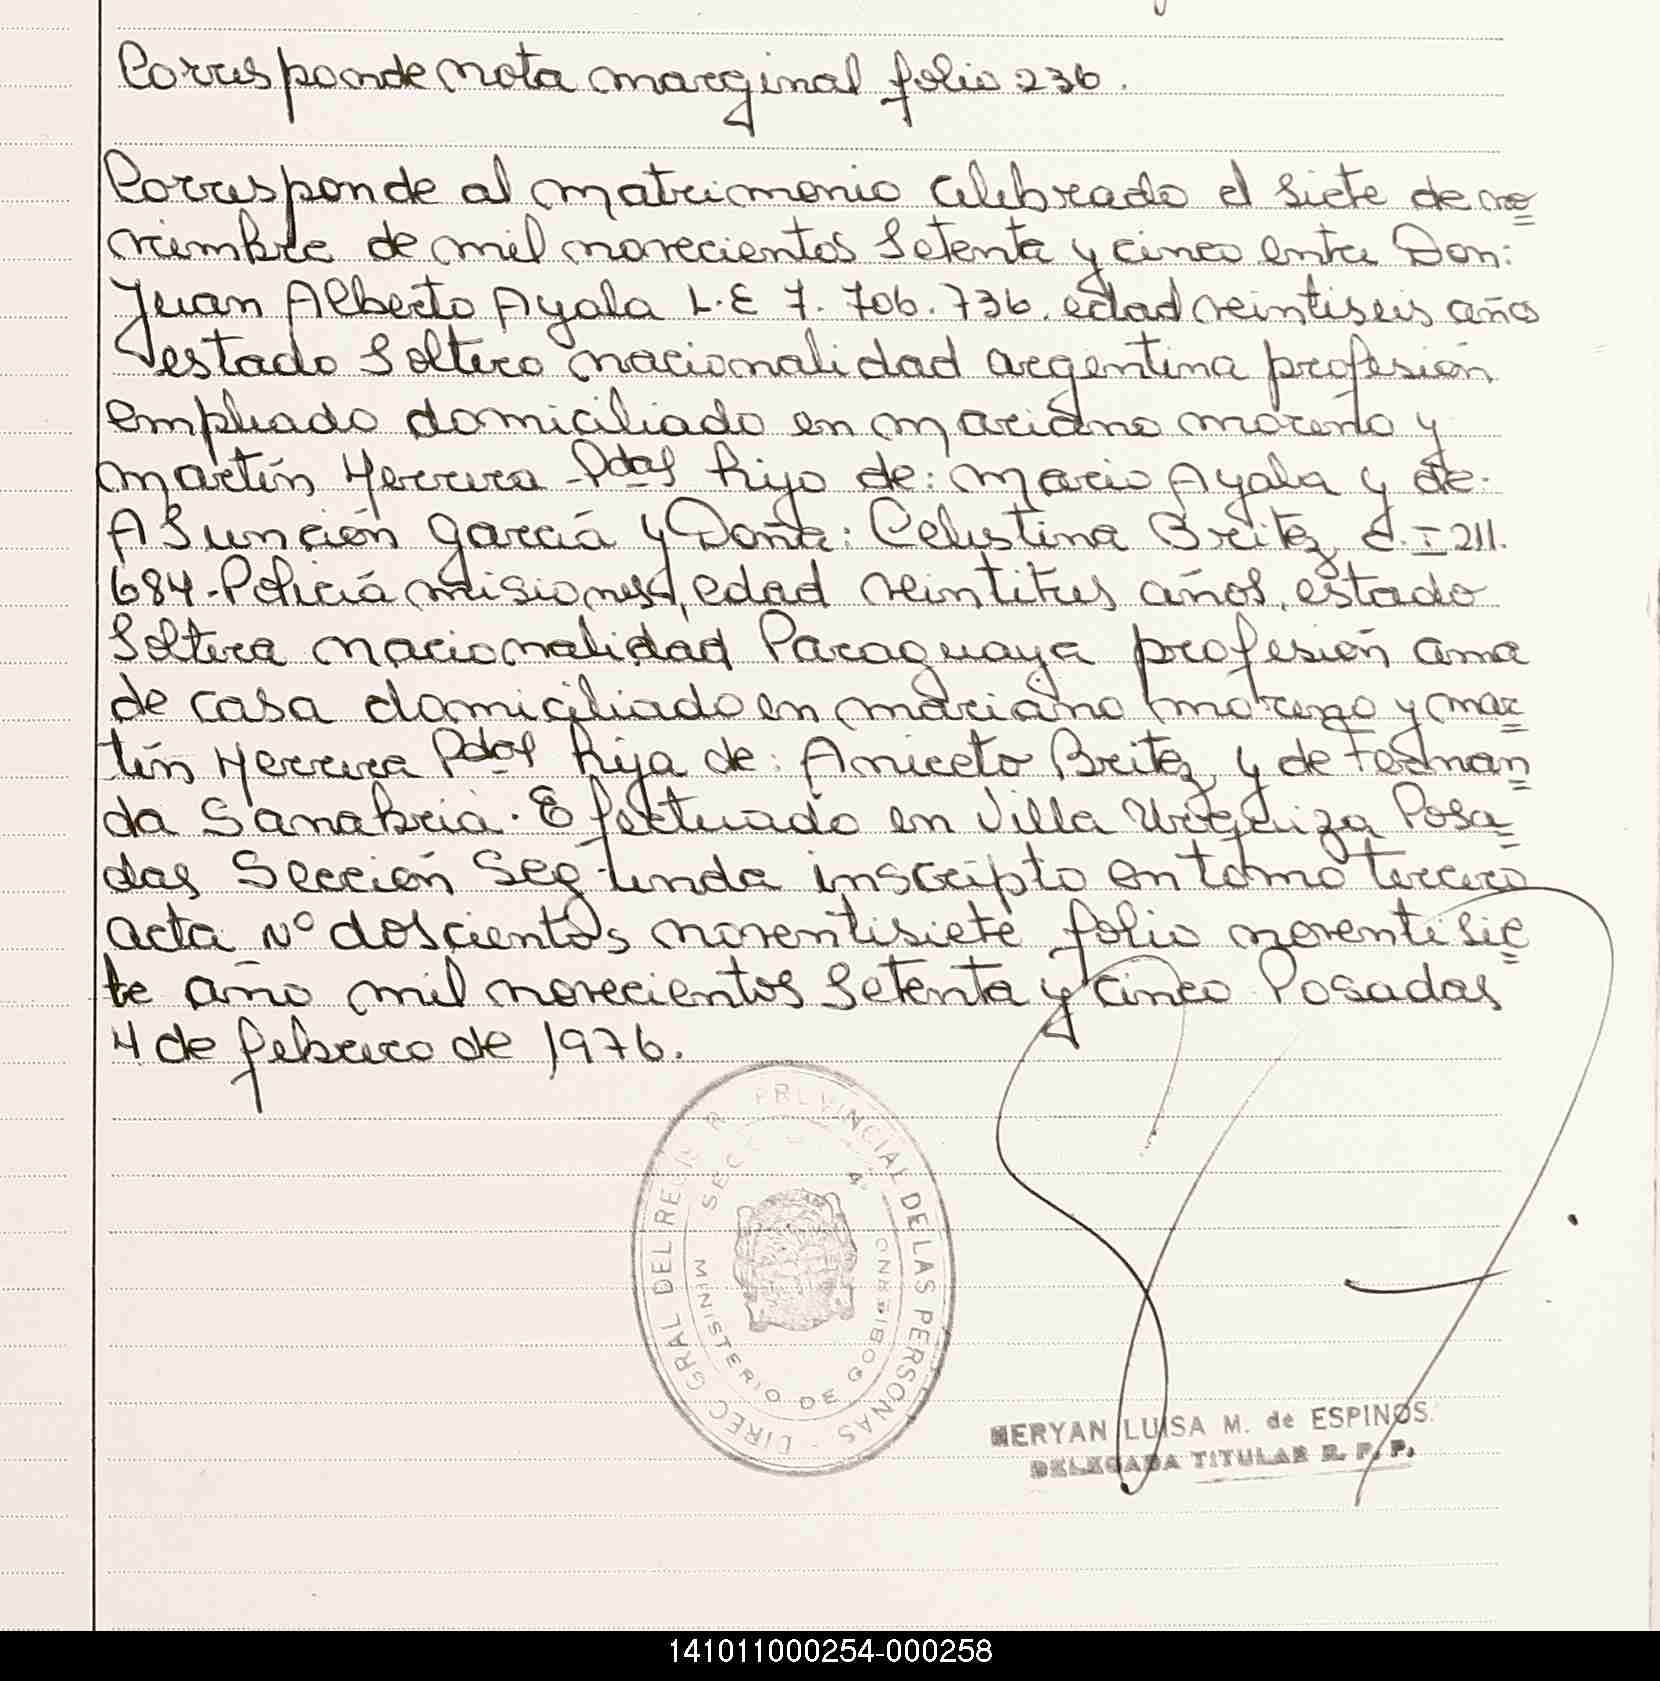 Corresponde nota marginal folio 236.
Corresponde al matrimonio celebrado el siete de no=
viembre de mil novecientos setenta y cinco entre Don:
Juan Alberto Ayala L.E 7.706.736. edad veintiseis años
estado soltero nacionalidad argentina profesión
empleado domiciliado en mariano moreno y
martín Herrera - Pdas hijo de: Mario Ayala y de.
Asunción García y Doña: Celestina Britez C.I 211.
684-Policiá misiones, edad veintitres años, estado
soltera nacionalidad Paraguaya profesión ama
de casa domiciliado en mariano moreno y mar=
tín Herrera Pdas hija de: Aniceto Britez y de Fernan=
da Sanabria. Efectuado en Villa Urquiza Posa=
das Sección Segunda inscripto en tomo tercero
acta Nº doscientos noventisiete folio noventisie=
te año mil novecientos setenta y cinco Posadas
4 de febrero de 1976.
DIREC GRAL DEL REGISTR PROVINCIAL DE LAS PERSONAS -
SECC 4ª
MINISTERIO DE GOBIERNO
MERYAN LUISA M. de ESPINOS.
DELEGADA TITULAR R. P. P.
141011000254-000258